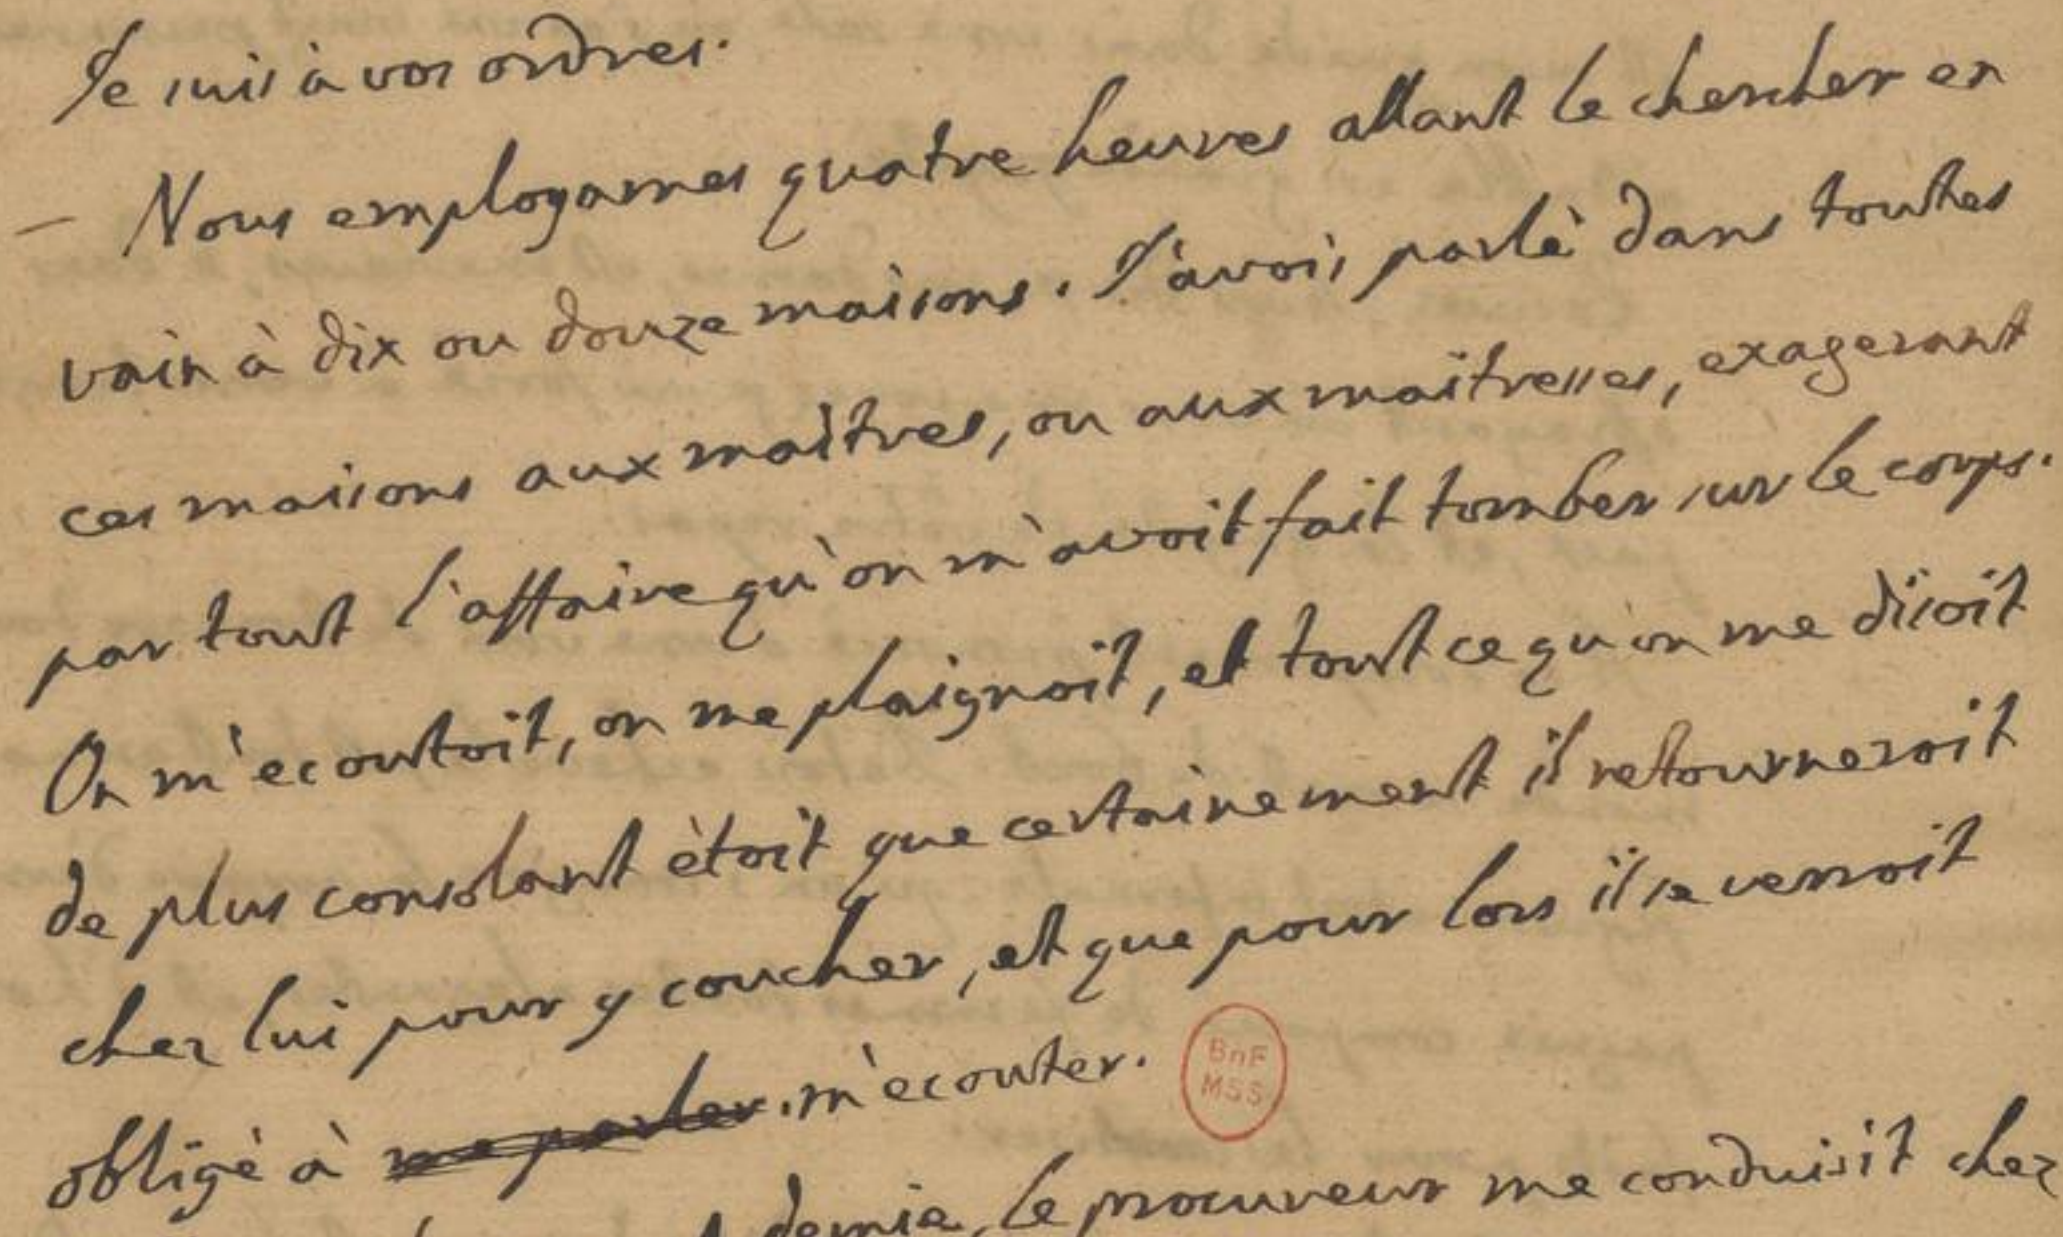 Je suis à vos ordres.
– Nous employames quatre heures allant le chercher en
vain à dix ou douze maisons. J'avois parlé dans toutes
ces maisons aux maitres, ou aux maîtresses, exagerant
par tout l'affaire qu'on m'avoit fait tomber sur le corps.
On m'ecoutoit, on me plaignoit, et tout ce qu'on me disoit
de plus consolant étoit que certainement il retourneroit
chez lui pour y coucher, et que pour lors il se verroit
obligé à me parler. m'ecouter.
BnF
MSS
demie, le procureur me conduisit chez